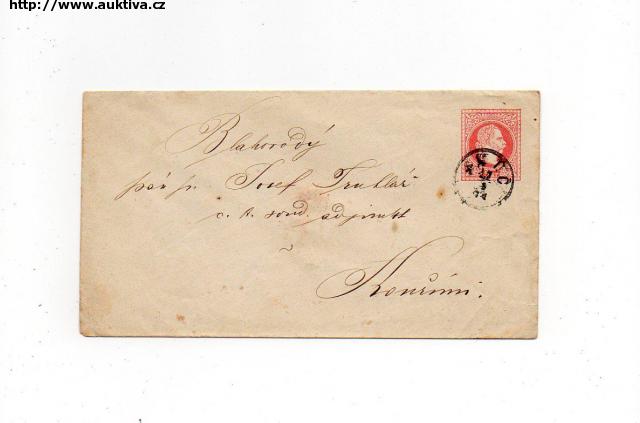 http://www.auktiva.cz
Blahorodý
pán p. Josef Truhlář
c. k. soud. adjunkt
v
Kouřimi.
SKUČ